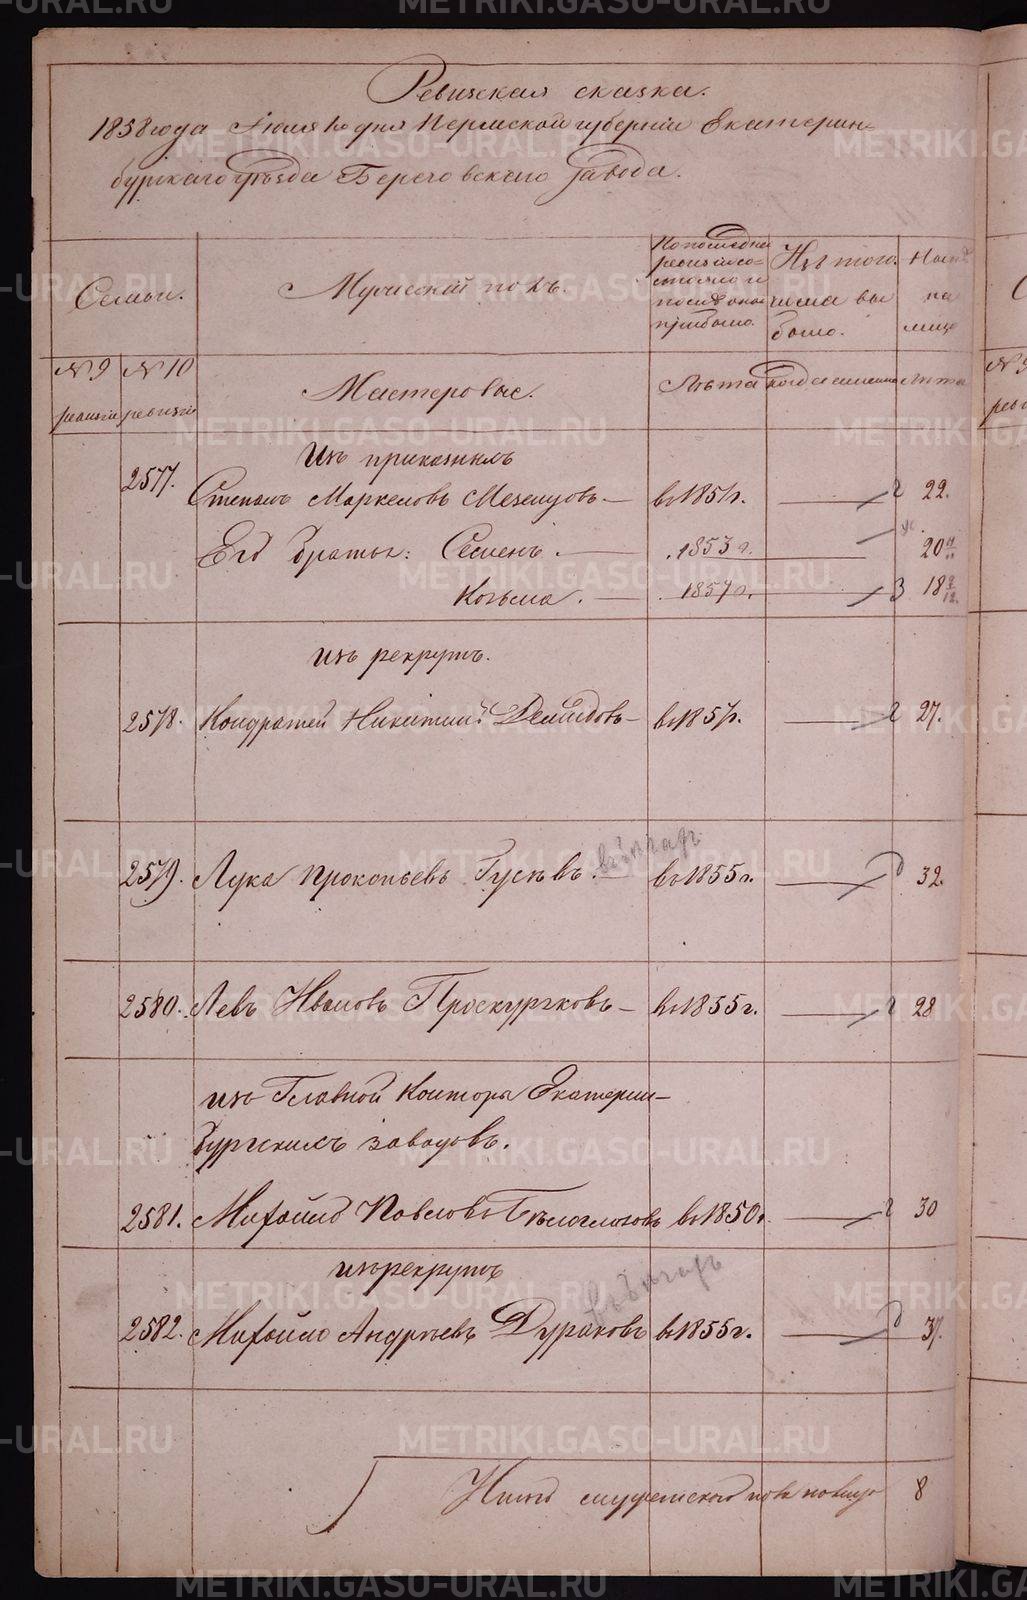 Ревизская сказка.
1858 года Июня 1го дня Пермской губернiи Екатерин-
бургскаго уѣзда Березовскаго завода.
Семьи.
Мужескiй полъ.
По последней
ревизiи со-
стояло и
после оной
прибыло.
Изъ того
числа вы
было.
Ныне
на
лицо
№ 9
ревизiи
№ 10
ревизiи
Мастеровые.
Лѣта
когда именно
лѣта
Изъ приказныхъ
2577. Степанъ Маркеловъ въ 1857г. 22.
Его братья: Семенъ. 1853 г. 20
Козьма. 1857 г. 18
Изъ рекрутъ.
2578. Кондратей Никитинъ Демидовъ въ 1857г. 27.
2579. Лука Прокопьевъ Гусевъ. въ 1855 г. 32.
2580. Левъ Ивановъ Проскуряковъ въ 1855 г. 28
изъ Главной Конторы Екатерин-
бургскихъ заводовъ.
2581. Михайло Павловъ Бѣлоглазовъ въ 1850г. 30
изъ рекрутъ
2582. Михайло Андреевъ Дураковъ въ 1855г. 37.
Итого мужескаго полу на лицо 8
METRIKI.GASO-URAL.RU